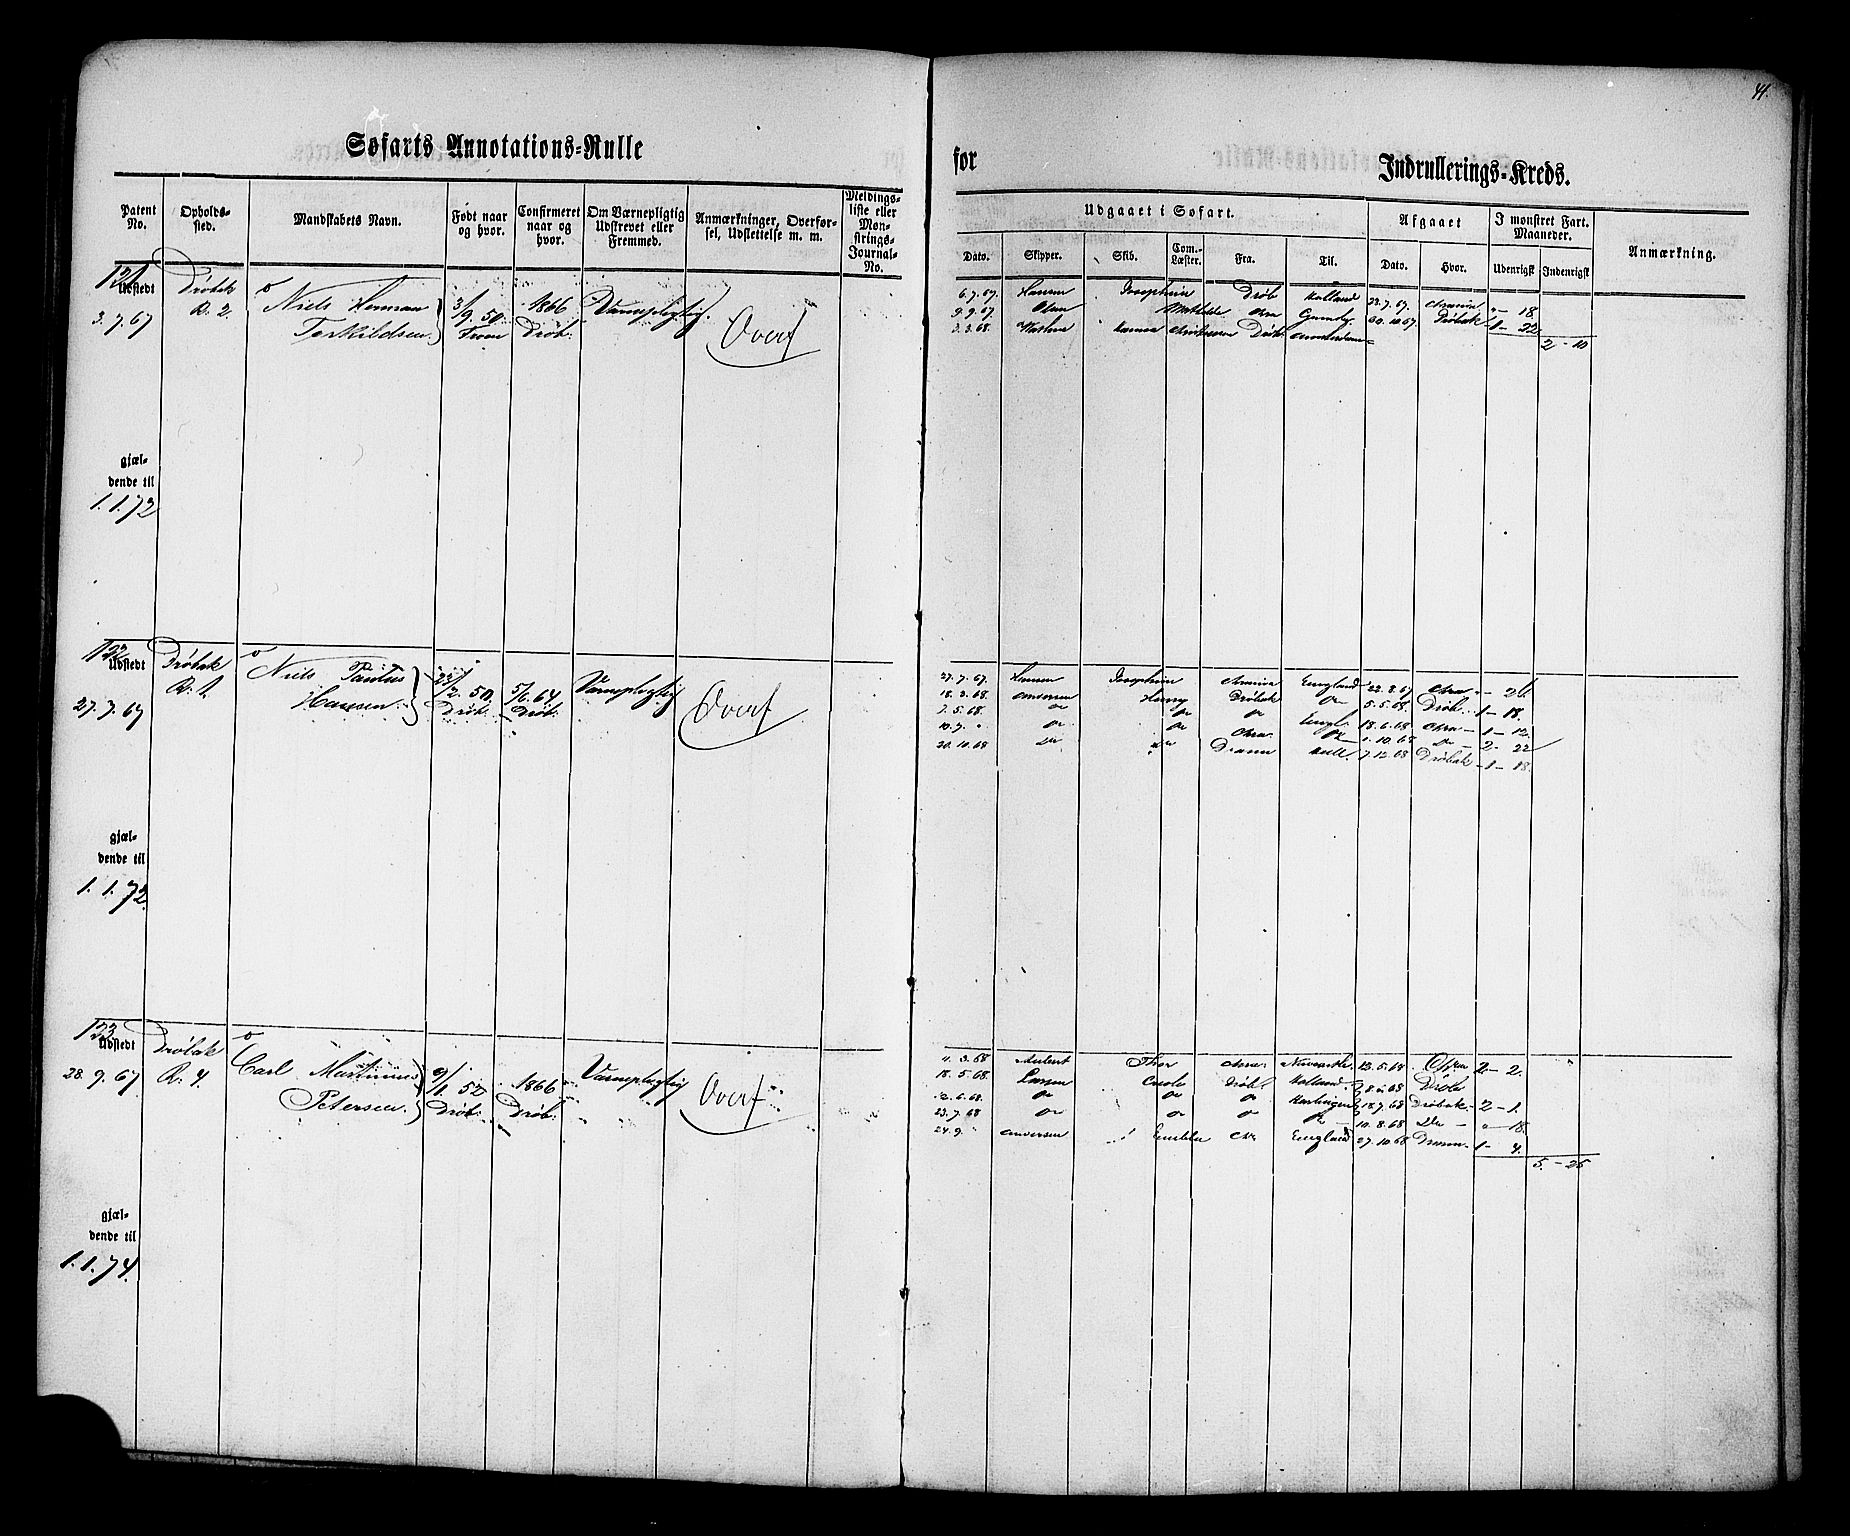 41.
Søfarts Annotations-Rulle
for
Indrullerings-Kreds.
Patent No.
Opholds-sted.
Mandskabets Navn.
Født naar og hvor.
Confirmeret naar og hvor.
Om Værnepligtig Udskrevet eller Fremmed.
Anmærkninger, Overførsel, Udslettelse m. m.
Meldings-liste eller Mon-strings-Journal-No.
Udgaaet i Søfart.
Afgaaet
I monstret Fart. Maaneder.
Anmærkning.
Dato.
Skipper.
Skib.
Com.-Læster.
Fra.
Til.
Dato.
Hvor.
Udenrigsk
Indenrigsk
121
Udstedt
3.7.67
Drøbak
R. 2.
Niels Herman
Terkildsen
3/9. 50.
1866
Drøb.
Værnepligtig.
Overf
6.7.67. Hansen Josephine Drøb Holland 23.7.67. " - 18.
9.9.67. Olsen Mathilde 30.10.67 Drøbak 1 - 22
2.3.68. Drøb. Amsterdam
2 - 10
gjæl-
dende til
1.1.72
122
Udstedt
27.7.67
Drøbak
R. 1.
Niels Paulus
Hansen
23/2. 50
Drøb.
5/6. 64
Drøb.
Værnepligtig
Overf
27.7.67. Hansen Josephine England 22.8.67 Chra " - 26
18.3.68. Andersen Henry Drøbak Do 5.5.68. Drøb. 1 - 18.
7.5.68. Do Do Do Engl. 18.6.68 Chra - 1 - 12.
10.7. " Do Do Chra. Do 1.10.68 Do - 2 - 22
20.10.68 Do Do Dramm Hull. 7.12.68 Drøbak - 1 - 18.
gjæl-
dende til
1.1.72.
123
Udstedt
28.9.67
Drøbak
R. 4.
Carl Martinius
Petersen.
9/1. 52
Drøb.
1866
Drøb.
Værnepligtig
Overf
4.3.68 Thor Newcastle. 13.5.68. 2 - 2. "
18.5.68. Larsen Drøb. Holland 8.6.68 Drøb
12.6.68. Do Do Do Harlingen 18.7.68 Drøbak. 2 - 1.
23.7.68 Do Do Do Do 10.8.68 Do - " - 18.
24.9. " Andersen England 27.10.68 Dramm. 1 - 4.
5. - 25
gjæl-
dende til
1.1.74.